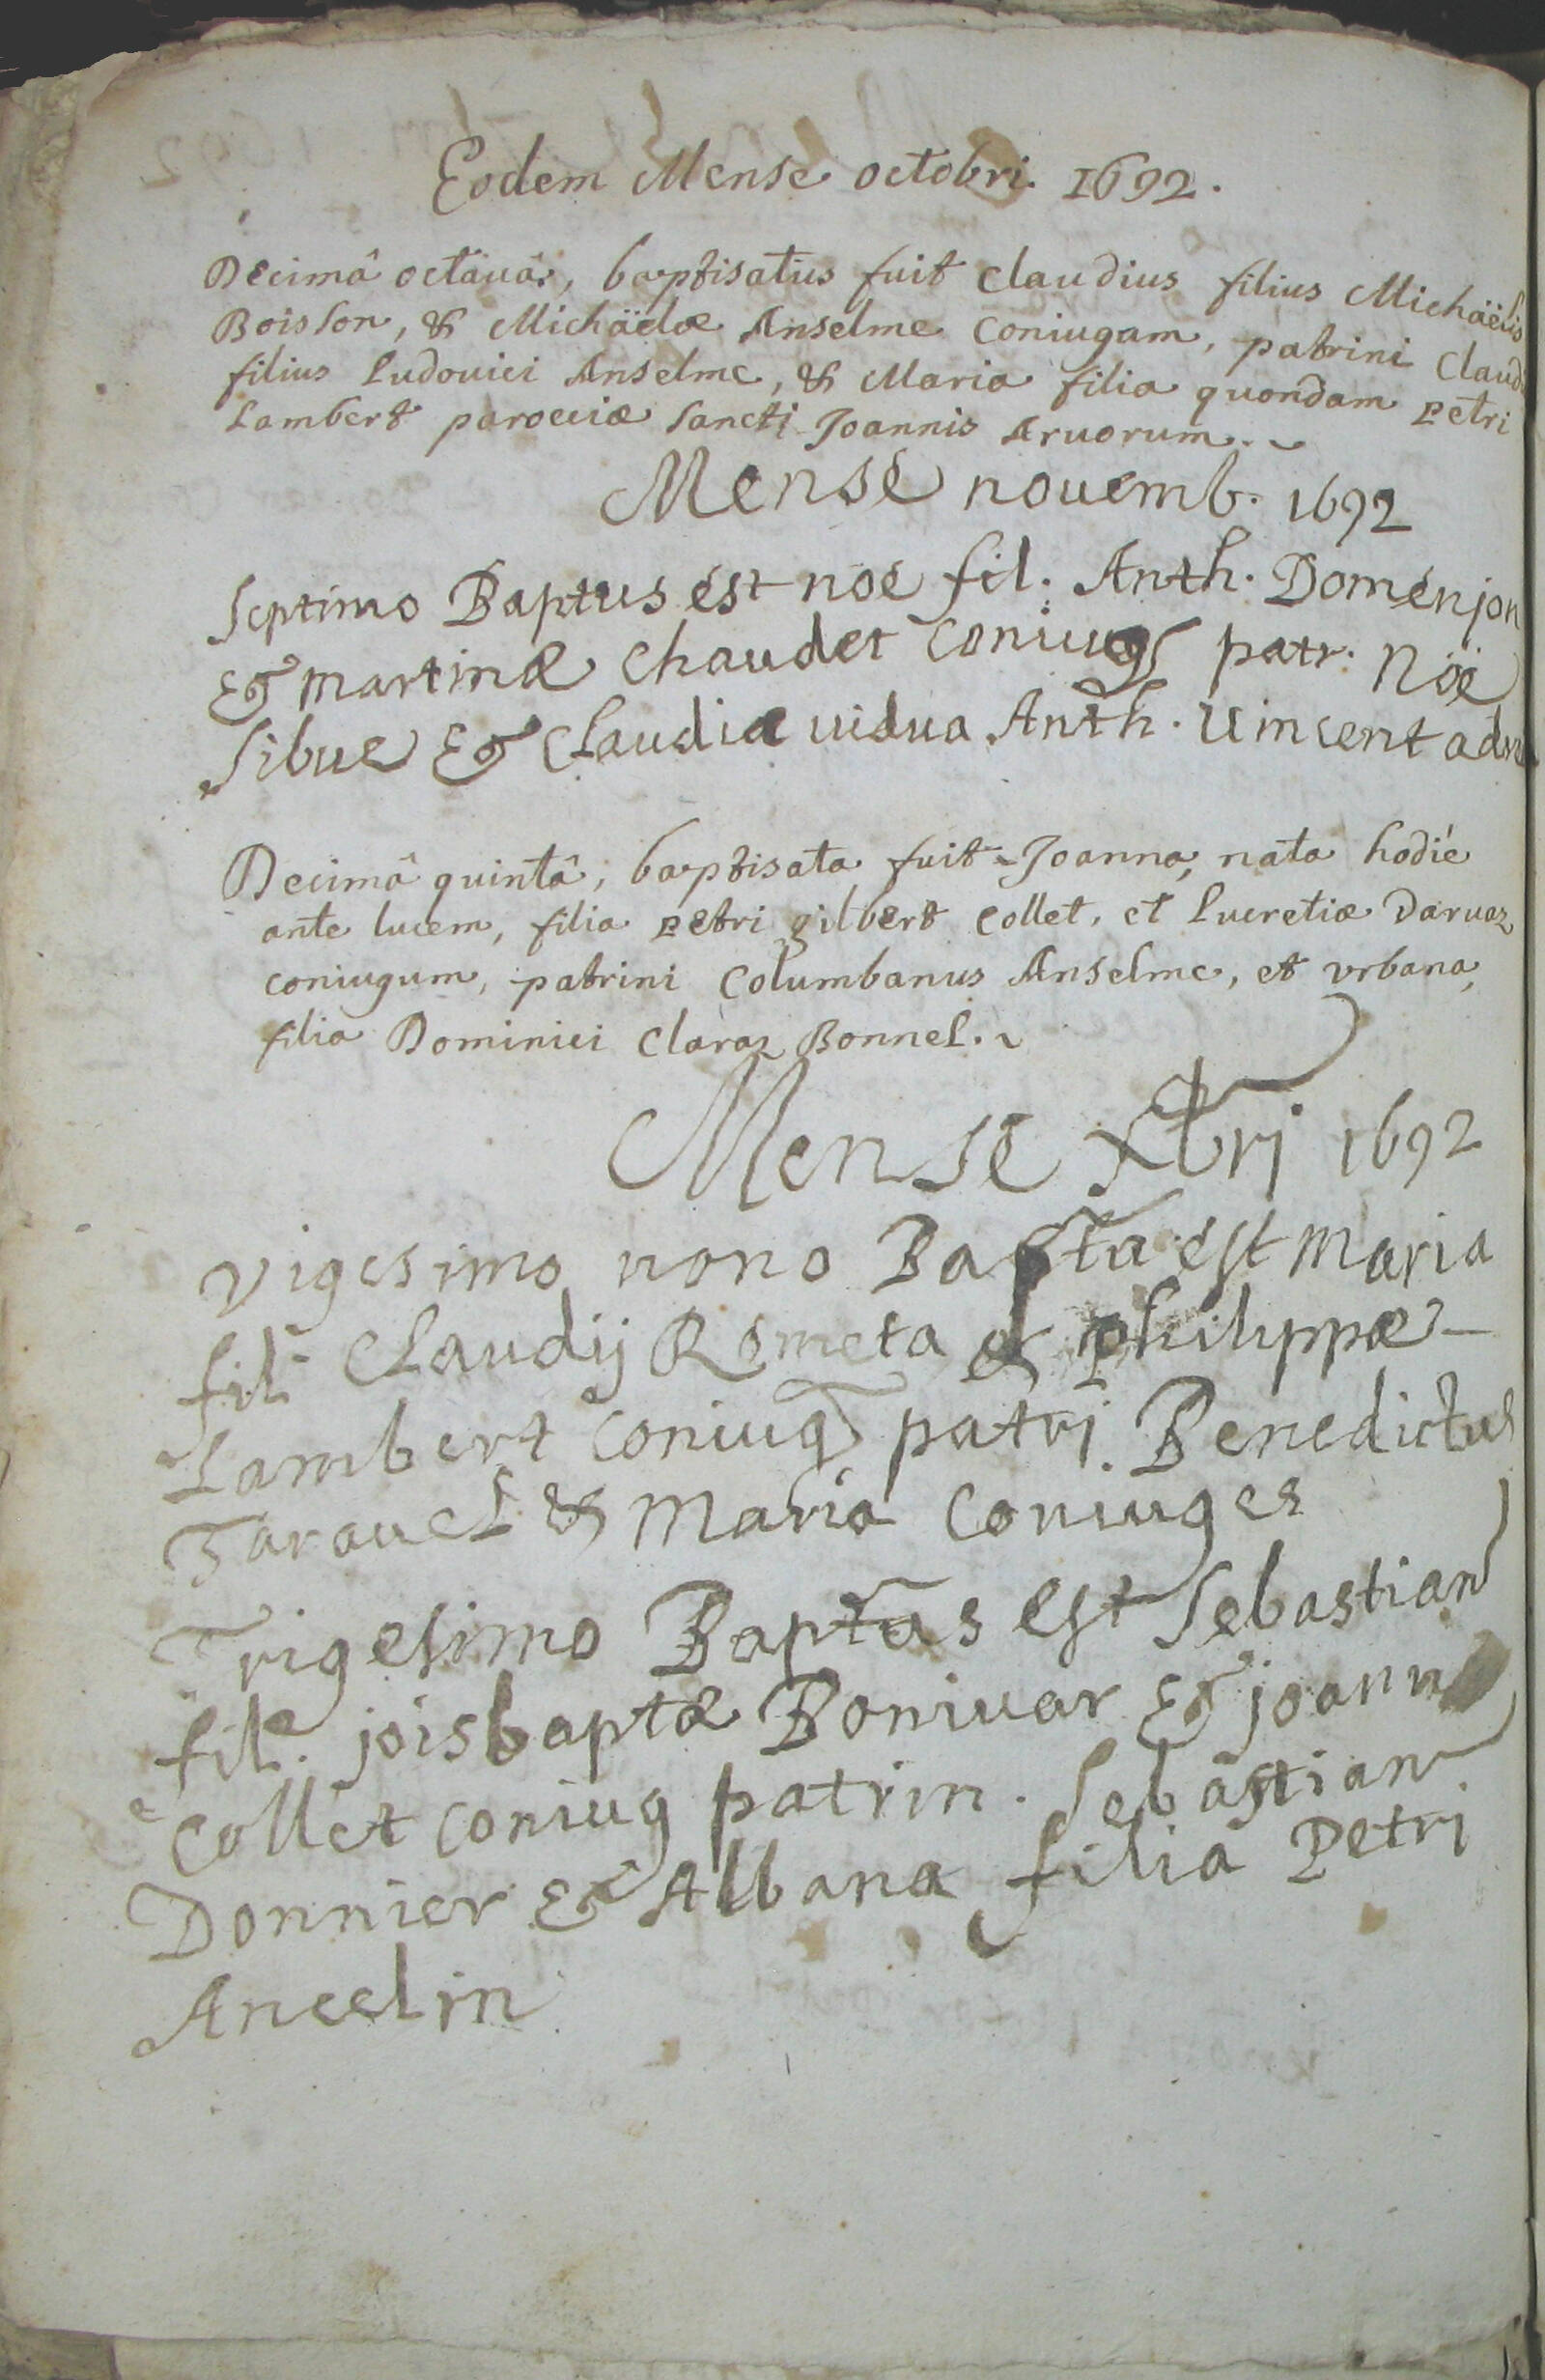 Eodem Mense octobri 1692.
Decimâ octauâ, baptisatus fuit Claudius filius Michaëlis
Boisson, & Michaëlæ Anselme Coniugam, patrini Claud
filius Ludouici Anselme, & Maria filia quondam Petri
Lambert parociæ Sancti Joannis Aruorum.
Mense nouemb. 1692
Septimo Baptus est noe fil. Anth. Domenjon
Et martinæ Chaudet Coniug patr. Nöe
Sibue Et Claudia uidua Anth. Vincent
Decimâ quintâ, baptisata fuit Joanna, nata hodiè
ante lucem, filia Petri gilbert Collet, et Lucretiæ Daruaz
coniugum, patrini Columbanus Anselme, et vrbana,
filia Dominici Claraz Bonnel.
Mense Xbri 1692
Vigesimo nono Bapta est Maria
fil Claudij Rometa & philippæ
Lambert Coniug patri. Benedictus
Tarauel & Maria Coniuges
Trigesimo Baptas est Sebastian
fil. jois baptæ Boniuar Et joann
Collet Coniug patrin. Sebastian
Donnier Et Albana filia Petri
Ancelin